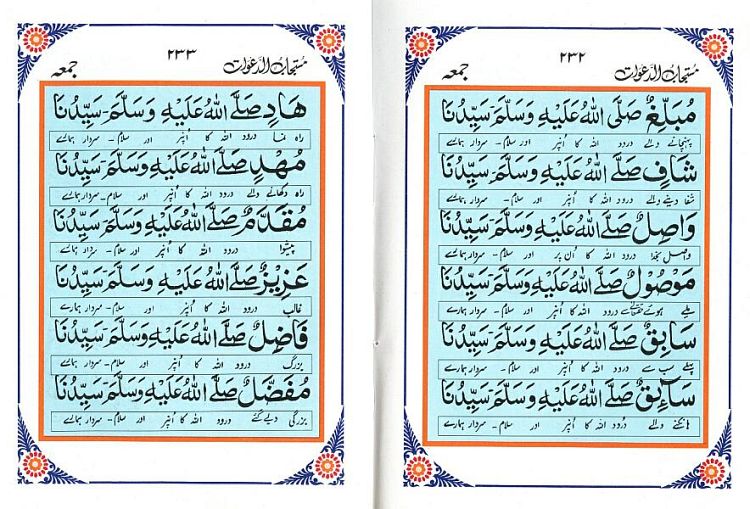 ۲۳۲
مستجاب الدعوات
جمعہ
مُبَلِّغٌ صَلَّى اللهُ عَلَيْهِ وَسَلَّمَ۔ سَيِّدُنَا
پہنچانے والے درود اللہ کا اُنپر اور سلام۔ سردار ہمارے
شَافٍ صَلَّى اللهُ عَلَيْهِ وَسَلَّمَ۔ سَيِّدُنَا
شفا دینے والے درود اللہ کا اُنپر اور سلام۔ سردار ہمارے
وَاصِلٌ صَلَّى اللهُ عَلَيْهِ وَسَلَّمَ۔ سَيِّدُنَا
درود اللہ کا اُن پر اور سلام۔ سردار ہمارے
مَوْصُولٌ صَلَّى اللهُ عَلَيْهِ وَسَلَّمَ۔ سَيِّدُنَا
ملے ہوئے درود اللہ کا اُنپر اور سلام۔ سردار ہمارے
سَابِقٌ صَلَّى اللهُ عَلَيْهِ وَسَلَّمَ۔ سَيِّدُنَا
پہلے سب سے درود اللہ کا اُنپر اور سلام۔ سردار ہمارے
سَآئِقٌ صَلَّى اللهُ عَلَيْهِ وَسَلَّمَ۔ سَيِّدُنَا
ہانکنے والے درود اللہ کا اُنپر اور سلام۔ سردار ہمارے
۲۳۳
مستجاب الدعوات
جمعہ
هَادٍ صَلَّى اللهُ عَلَيْهِ وَسَلَّمَ۔ سَيِّدُنَا
راہ نما درود اللہ کا اُنپر اور سلام۔ سردار ہمارے
مُهْدٍ صَلَّى اللهُ عَلَيْهِ وَسَلَّمَ۔ سَيِّدُنَا
راہ دکھانے والے درود اللہ کا اُنپر اور سلام۔ سردار ہمارے
مُقَدَّمٌ صَلَّى اللهُ عَلَيْهِ وَسَلَّمَ۔ سَيِّدُنَا
پیشوا درود اللہ کا اُنپر اور سلام۔ سردار ہمارے
عَزِيْزٌ صَلَّى اللهُ عَلَيْهِ وَسَلَّمَ۔ سَيِّدُنَا
غالب درود اللہ کا اُنپر اور سلام۔ سردار ہمارے
فَاضِلٌ صَلَّى اللهُ عَلَيْهِ وَسَلَّمَ۔ سَيِّدُنَا
بزرگ درود اللہ کا اُنپر اور سلام۔ سردار ہمارے
مُفَضَّلٌ صَلَّى اللهُ عَلَيْهِ وَسَلَّمَ۔ سَيِّدُنَا
بزرگی دیے گئے درود اللہ کا اُنپر اور سلام۔ سردار ہمارے